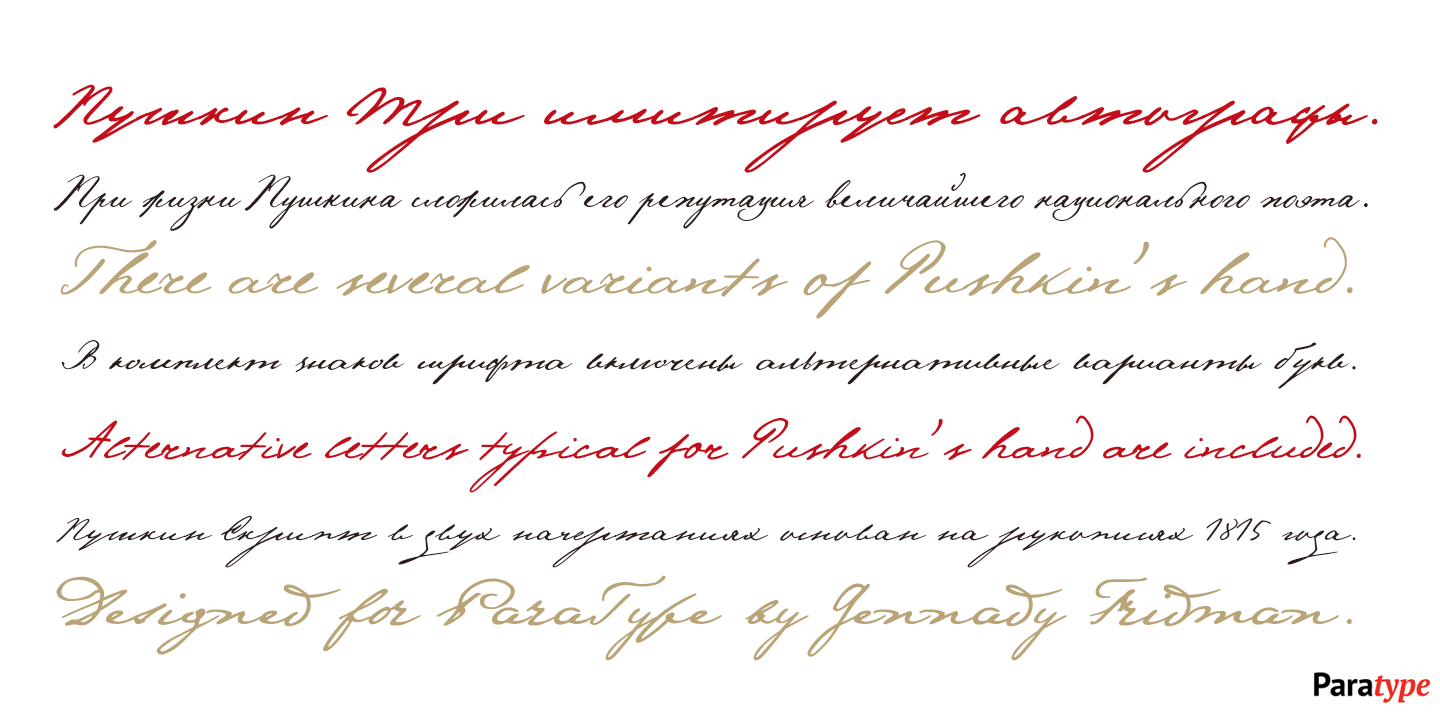 Пушкин Три имитирует автографы.
При жизни Пушкина сложилась его репутация величайшего национального поэта.
There are several variants of Pushkin's hand.
В комплект знаков шрифта включены альтернативные варианты букв.
Alternative letters typical for Pushkin's hand are included.
Пушкин Скрипт в двух начертаниях основан на рукописях 1815 года.
Designed for ParaType by Gennady Fridman.
Paratype